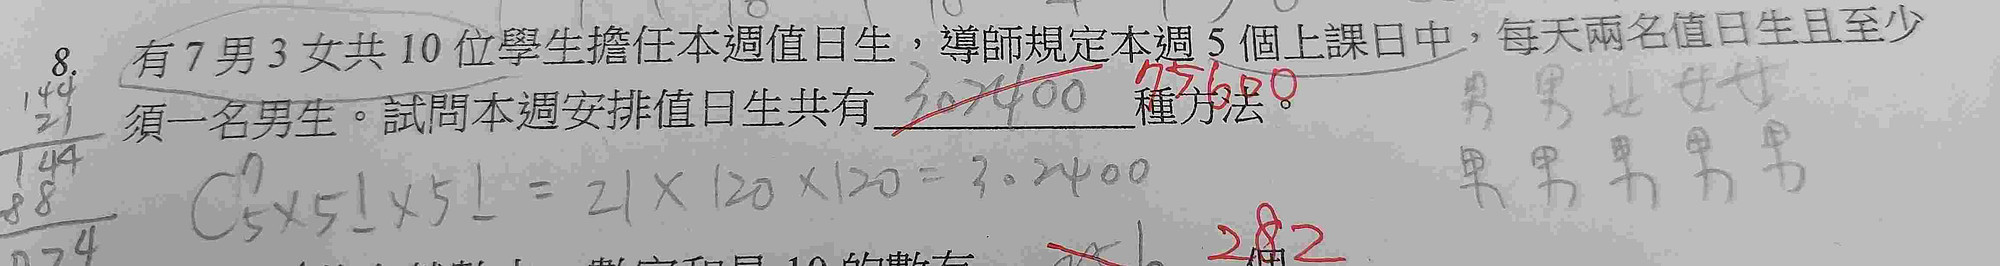 8. 有 7 男 3 女共 10 位學生擔任本週值日生，導師規定本週 5 個上課日中，每天兩名值日生且至少
須一名男生。試問本週安排值日生共有 302400 種方法。 75600
男 男 女 女 女
男 男 男 男 男
144
21
144
88
C⁷₅×5!×5! = 21×120×120 = 302400
282